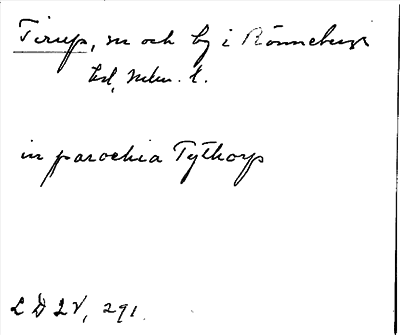 Tirup, sn och by i Rönnebergs
hd, Mlm. l.
in parochia Tythorp
L D 2V, 291.